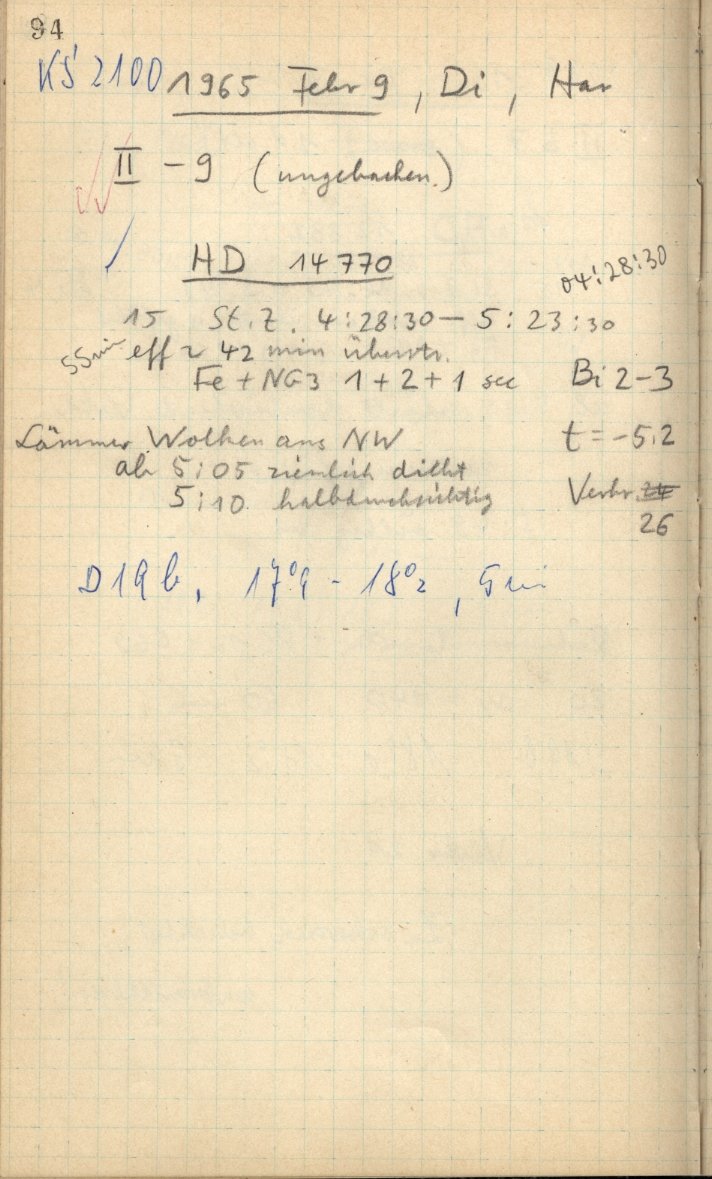 94
KŚ 2100 1965 Febr 9, Di, Har
II - 9 (ungebacken.)
HD 14770
04:28:30
15 St. Z. 4:28:30 — 5:23:30
55 min eff ~ 42 min
Fe + NG3 1 + 2 + 1 sec Bi 2-3
Lämmer Wolken aus NW t = -5.2
ab 5:05 ziemlich dicht
5:10 halbdurchsichtig Verbr.
26
D 19 b, 17°9 - 18°2, 5 min